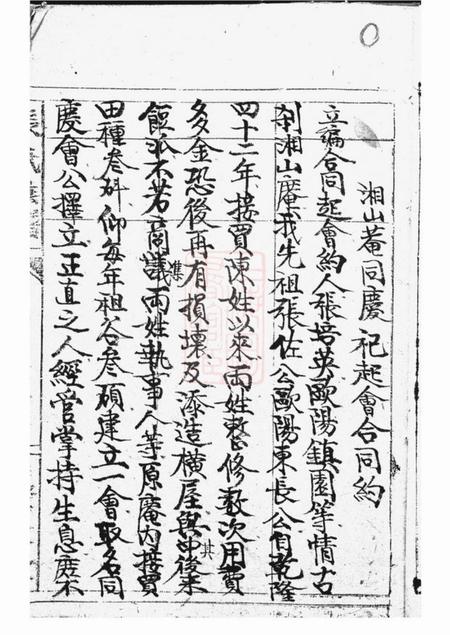 湘山菴同慶祀起會合同約
立編合同起會約人張培英歐陽鎮園等情古
刹湘山庵我先祖張佐公歐陽東長公自乾隆
四十二年接買陳姓以來兩姓整修数次用費
多金恐後再有損壞及添造橫屋與後來
其
餖不若商議兩姓執事人等原庵内接買
集
田種叁碑仰每年租谷叁碩建立一會取名同
慶會公擇立正直之人經管掌持生息庶不